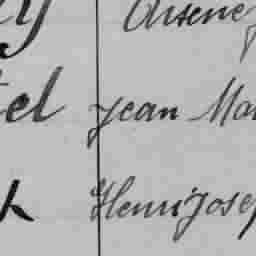 y Arsène
tel Jean Ma
k Henri Josep